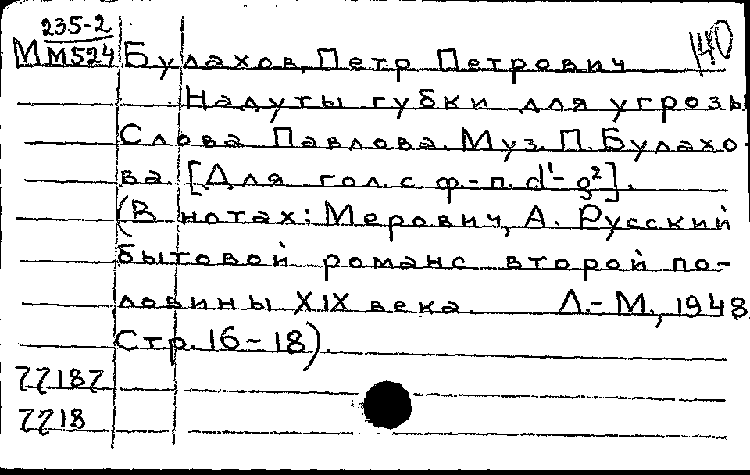 235-2
М М524 Булахов, Петр Петрович 140
Надуты губки для угрозы
Слова Павлова. Муз. П. Булахо-
ва. [Для гол. с ф-п. d¹-g²].
(В нотах: Мерович, А. Русский
бытовой романс второй по-
ловины XIX века. Л.-М., 1948.
Стр. 16-18).
77187
7718